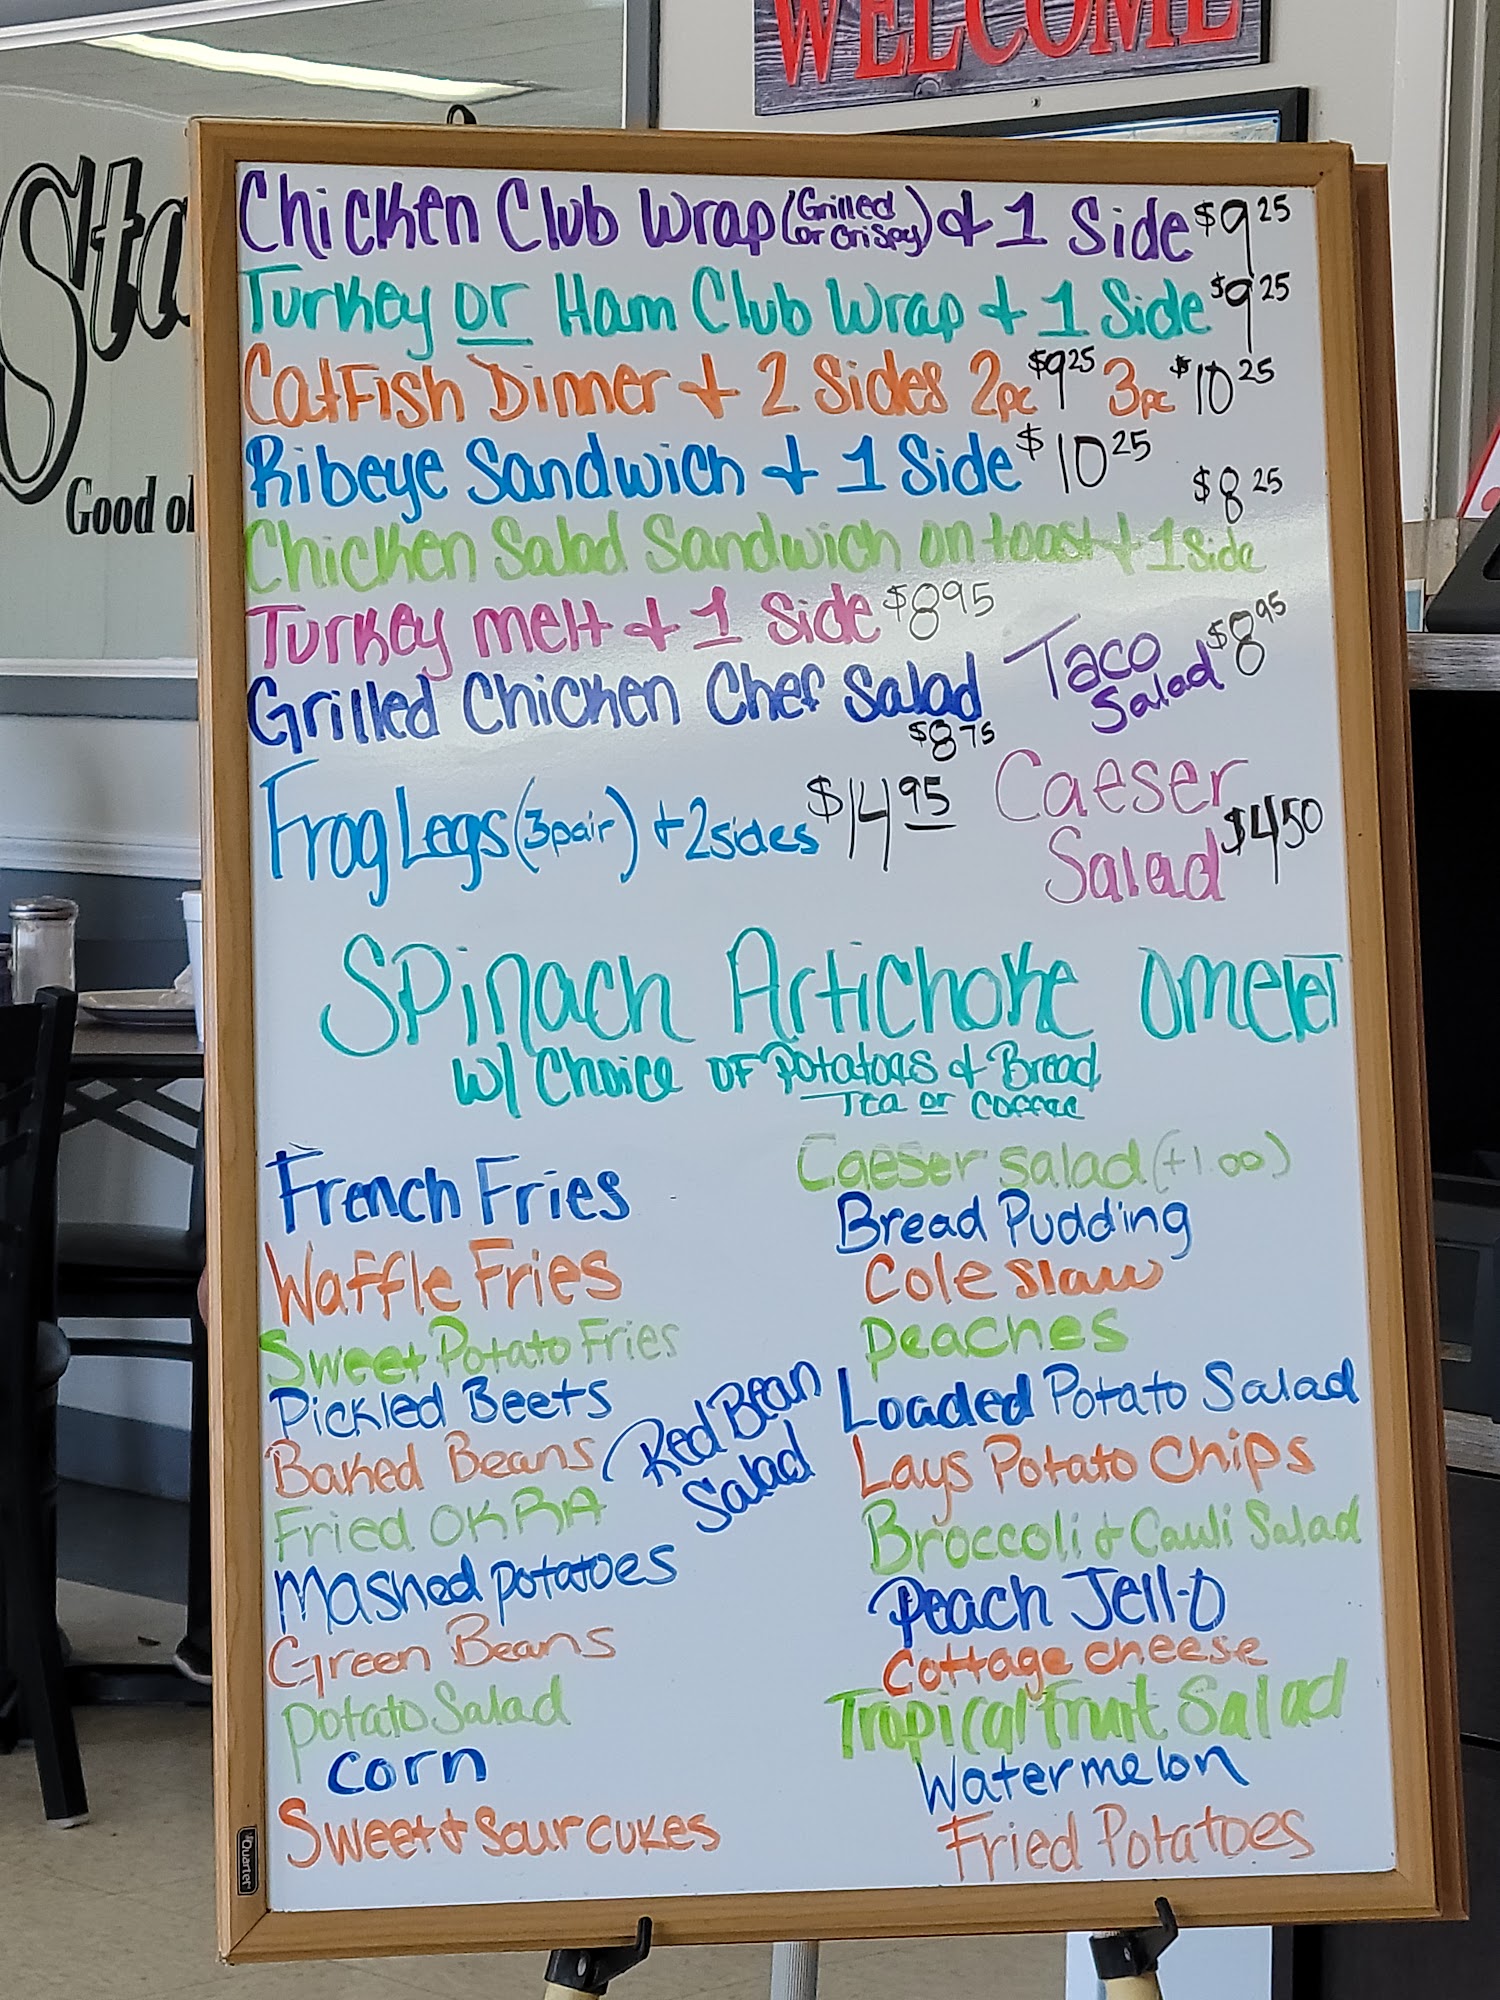 WELCOME
Sta
Good ol
Chicken Club Wrap (Grilled or Crispy) + 1 Side $9.25
Turkey or Ham Club Wrap + 1 Side $9.25
CatFish Dinner + 2 Sides 2pc $9.25 3pc $10.25
Ribeye Sandwich + 1 Side $10.25
$8.25
Chicken Salad Sandwich on toast + 1 Side
Turkey melt + 1 Side $8.95
Taco Salad $8.95
Grilled Chicken Chef Salad
$8.75
Frog Legs (3 pair) + 2 sides $14.95
Caeser
Salad $4.50
Spinach Artichoke Omelet
w/ Choice of Potatoes & Bread
Tea or Coffee
French Fries
Waffle Fries
Sweet Potato Fries
Pickled Beets
Baked Beans
Red Bean
Salad
Fried OKRA
Mashed potatoes
Green Beans
Potato Salad
Corn
Sweet & Sour cukes
Caeser salad (+1.00)
Bread Pudding
Cole slaw
Peaches
Loaded Potato Salad
Lays Potato Chips
Broccoli & Cauli Salad
Peach Jell-O
Cottage cheese
Tropical Fruit Salad
Watermelon
Fried Potatoes
Quartet